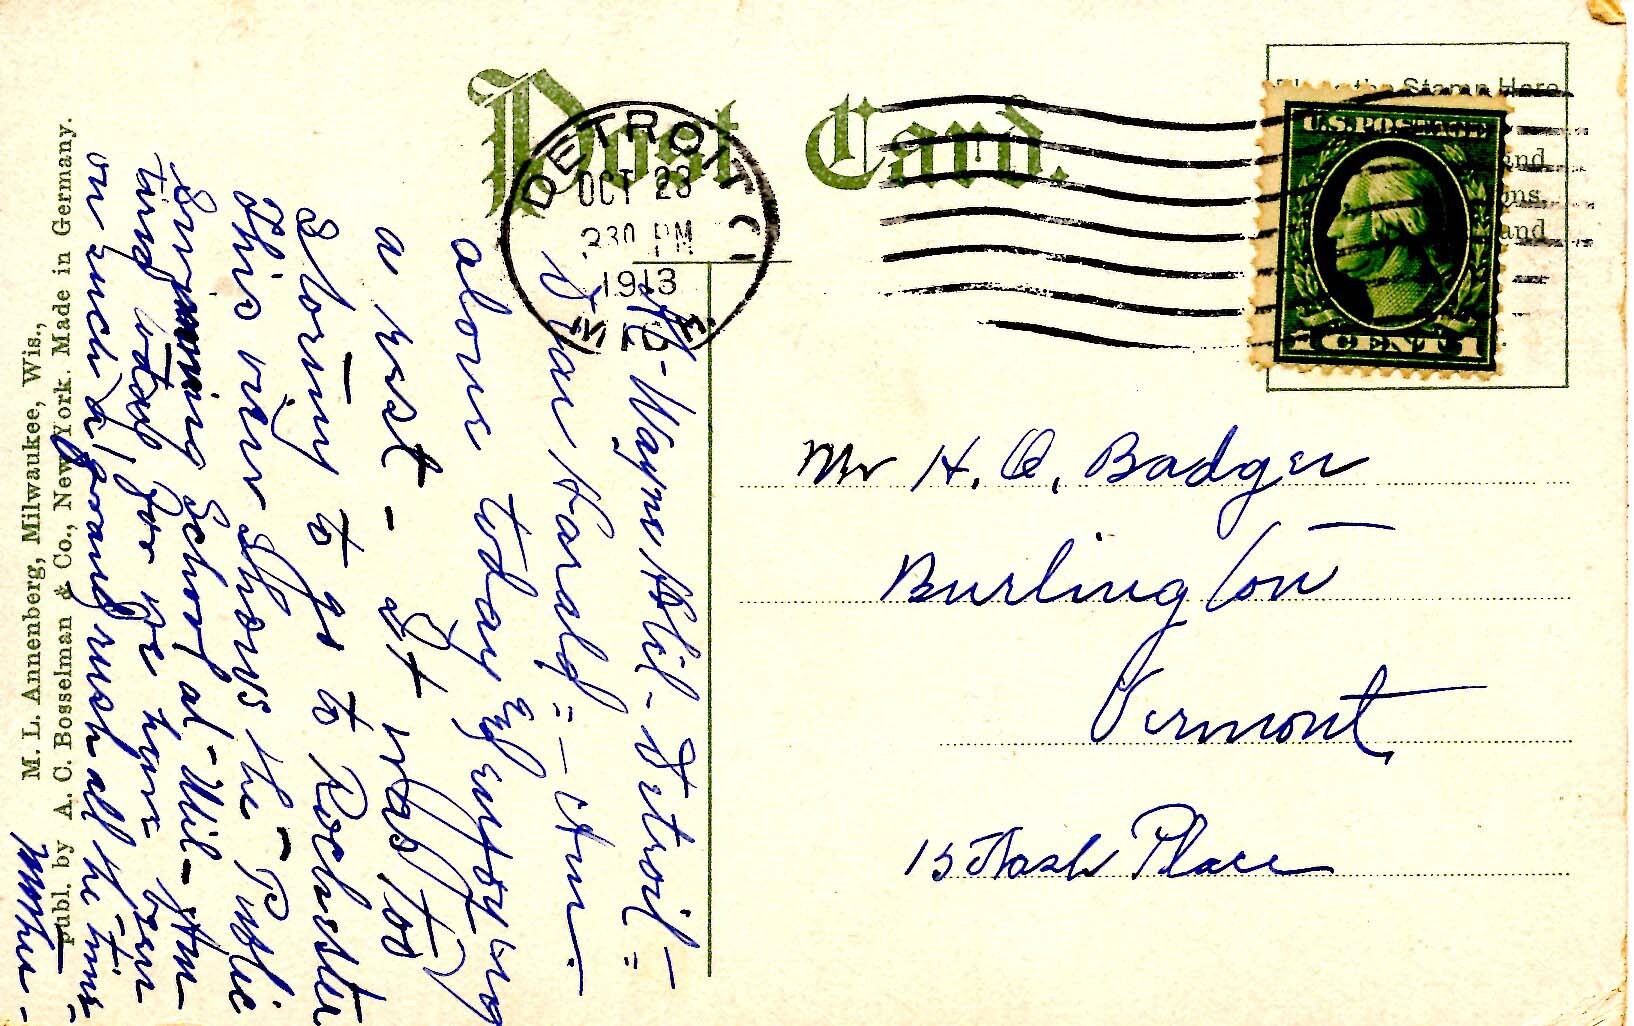 Post Card.
DETROIT
OCT 23
230 PM
1913
MICH.
Stamp Here
and
ons,
and
U.S. POSTAGE
1 CENT 1
Mr H. A. Badger
Burlington
Vermont
15 Nash Place
Ft-Wayne Htl-Detroit=
Dear Harald=-Am
alone today Enjoying
a rest- It was too
Stormy to go to Rochester
This view Shows the Public
Swimming School at-Mil-Am
tired today, for we have been
on such a grand rush all the time=
Mother-
M. L. Annenberg, Milwaukee, Wis.,
publ. by A. C. Bosselman & Co., New York. Made in Germany.